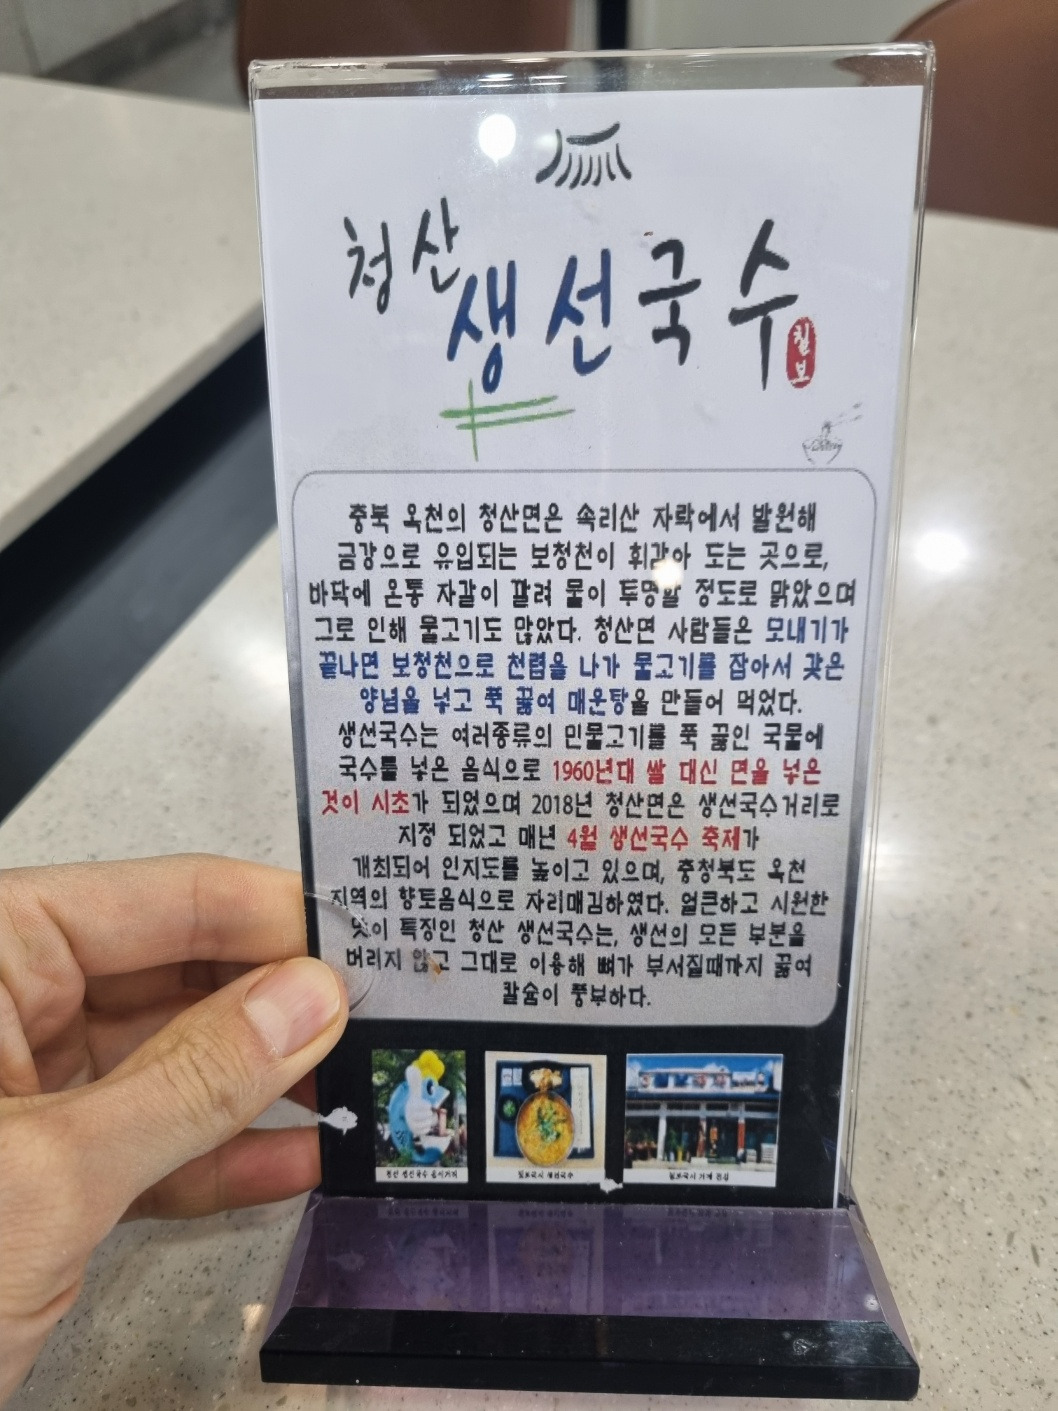 청산
생선국수
칠보
충북 옥천의 청산면은 속리산 자락에서 발원해
금강으로 유입되는 보청천이 휘감아 도는 곳으로,
바닥에 온통 자갈이 깔려 물이 투명할 정도로 맑았으며
그로 인해 물고기도 많았다. 청산면 사람들은 모내기가
끝나면 보청천으로 천렵을 나가 물고기를 잡아서 갖은
양념을 넣고 푹 끓여 매운탕을 만들어 먹었다.
생선국수는 여러종류의 민물고기를 푹 끓인 국물에
국수를 넣은 음식으로 1960년대 쌀 대신 면을 넣은
것이 시초가 되었으며 2018년 청산면은 생선국수거리로
지정 되었고 매년 4월 생선국수 축제가
개최되어 인지도를 높이고 있으며, 충청북도 옥천
지역의 향토음식으로 자리매김하였다. 얼큰하고 시원한
맛이 특징인 청산 생선국수는, 생선의 모든 부분을
버리지 않고 그대로 이용해 뼈가 부서질때까지 끓여
칼슘이 풍부하다.